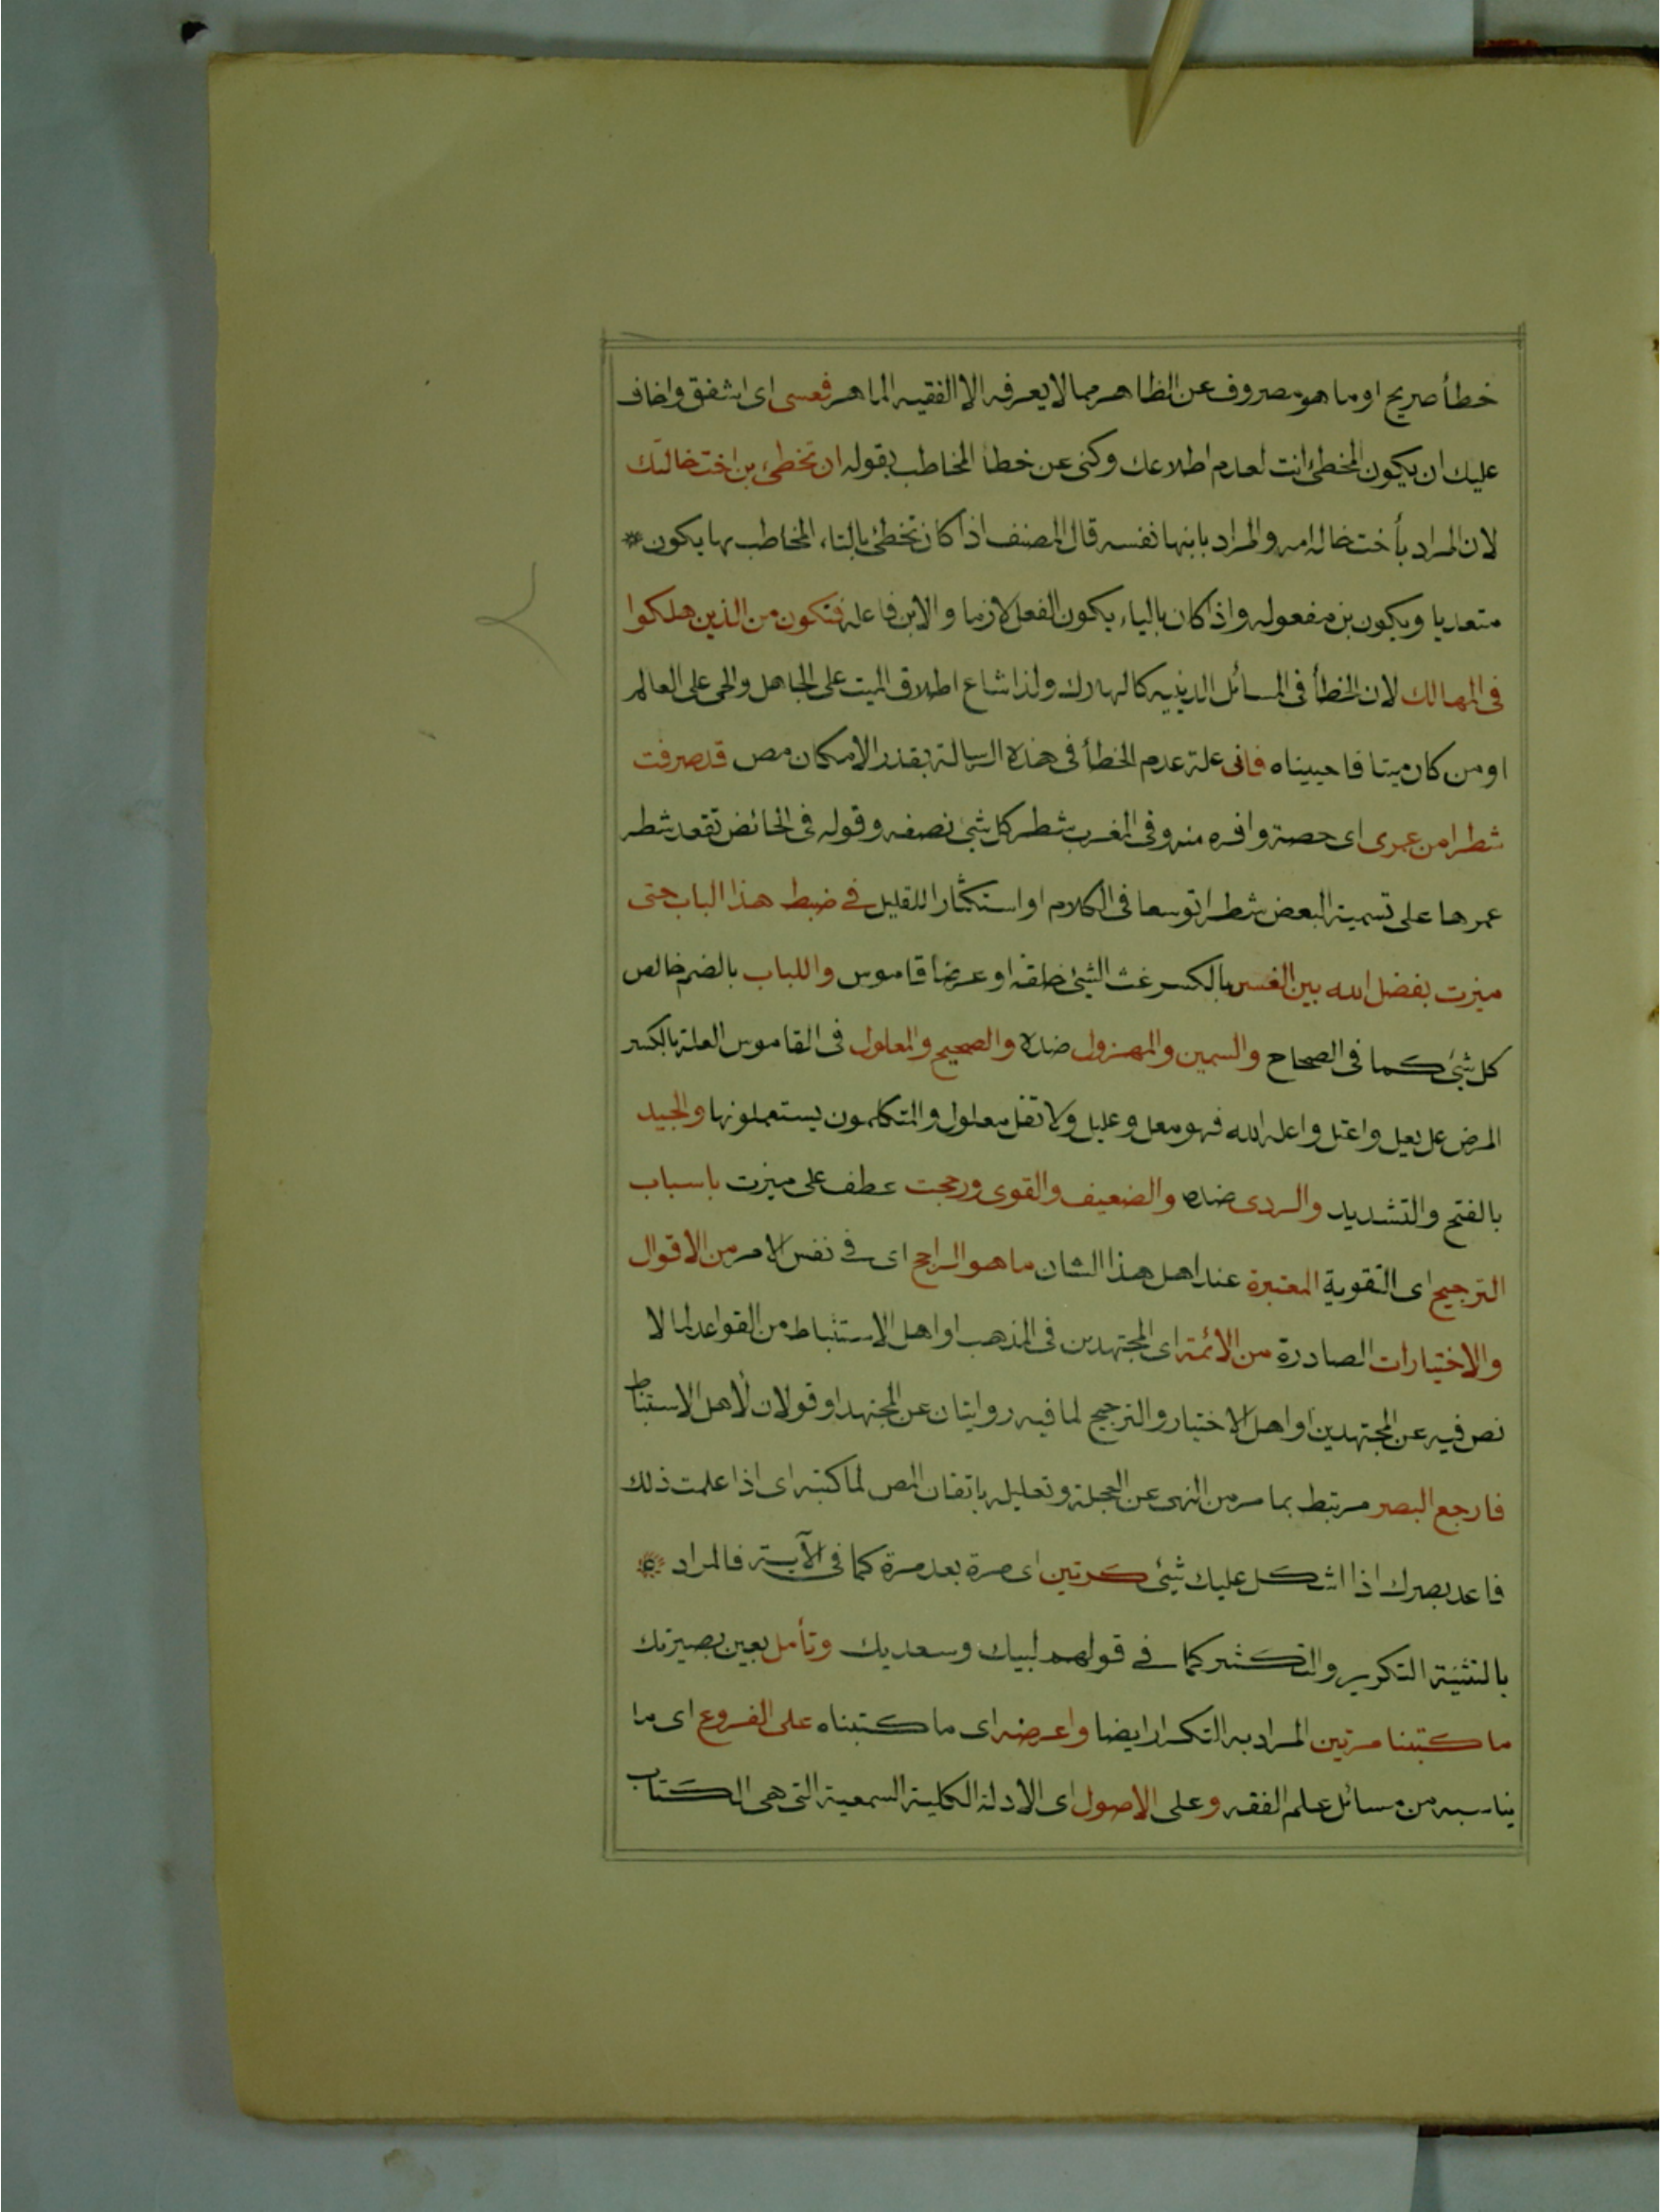 خطأ صريح او ما هو مصروف عن الظاهر مما لا يعرفه الا الفقيه الماهر فعسى اى اشفق واخاف
عليك ان يكون المخطئ انت لعدم اطلاعك وكنى عن خطأ المخاطب بقوله ان تخطئ بن اخت خالتك
لان المراد بأخت خاله امه والمراد بابنها نفسه قال المصنف اذا كان تخطئ بالتاء المخاطب بها يكون *
متعديا ويكون بن مفعوله واذا كان بالياء يكون الفعل لازما والابن فاعله فتكون من الذين هلكوا
فى المهالك لان الخطأ فى المسائل الدينيه كالهلاك ولذا شاع اطلاق الميت على الجاهل والحى على العالم
او من كان ميتا فاحييناه فانى علة عدم الخطأ فى هذه الرسالة بقدر الامكان مص قد صرفت
شطرا من عمرى اى حصة وافره منه وفى المغرب شطر كل شئ نصفه وقوله فى الحائض تقعد شطر
عمرها على تسمية البعض شطرا توسعا فى الكلام او استكثارا للقليل فى ضبط هذا الباب حتى
ميزت بفضل الله بين الغسر بالكسر غث الشئ خلقة او عرضا قاموس واللباب بالضم خالص
كل شئ كما فى الصحاح والسمين والمهزول ضده والصحيح والمعلول فى القاموس العلة بالكسر
المرض عل يعل واعتل واعله الله فهو معل وعليل ولا تقل معلول والمتكلمون يستعملونها والجيد
بالفتح والتشديد والردى ضده والضعيف والقوى ورجحت عطف على ميزت باسباب
الترجيح اى التقوية المعتبرة عند اهل هذا الشان ما هو الراجح اى فى نفس الامر من الاقوال
والاختيارات الصادرة من الائمة اى المجتهدين فى المذهب او اهل الاستنباط من القواعد لما لا
نص فيه عن المجتهدين او اهل الاختيار والترجيح لما فيه روايتان عن المجتهد او قولان لأهل الاستنباط
فارجع البصر مرتبط بما مر من النهى عن العجلة وتعليله باتقان المص لما كتبه اى اذا علمت ذلك
فاعد بصرك اذا اشكل عليك شئ كرتين اى مرة بعد مرة كما فى الآية فالمراد
بالتثنية التكرير والتكثير كما فى قولهم لبيك وسعديك وتأمل بعين بصيرتك
ما كتبنا مرتين المراد به التكرار ايضا واعرضه اى ما كتبناه على الفروع اى ما
يناسبه من مسائل علم الفقه وعلى الاصول اى الادلة الكلية السمعية التى هى الكتاب